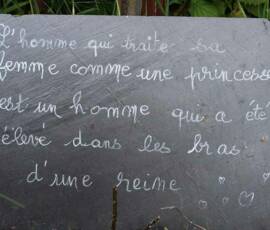 L'homme qui traite sa
femme comme une princess
est un homme qui a été
élevé dans les bras
d'une reine